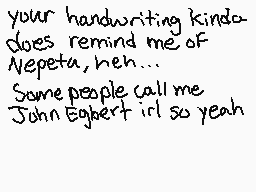 your handwriting kinda
does remind me of
Nepeta, heh...
Some people call me
John Egbert irl so yeah